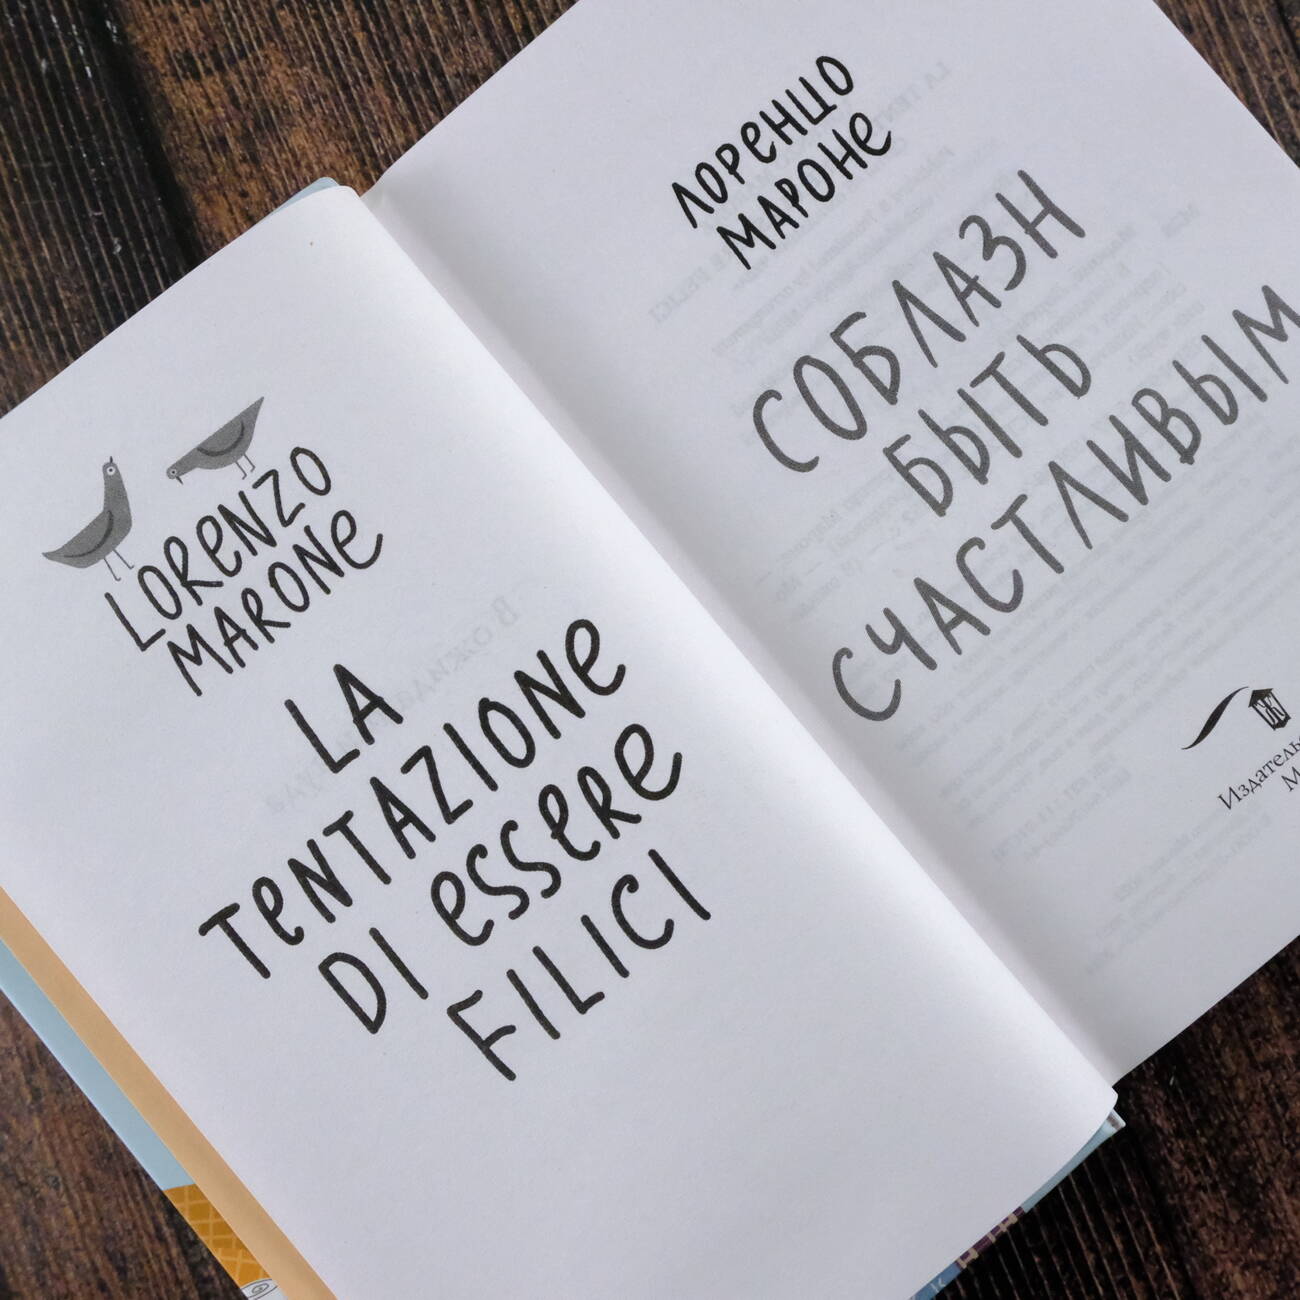 LORENZO
MARONE
LA
TENTAZIONE
DI ESSERE
FILICI
ЛОРЕНЦО
МАРОНЕ
СОБЛАЗН
БЫТЬ
СЧАСТЛИВЫМ